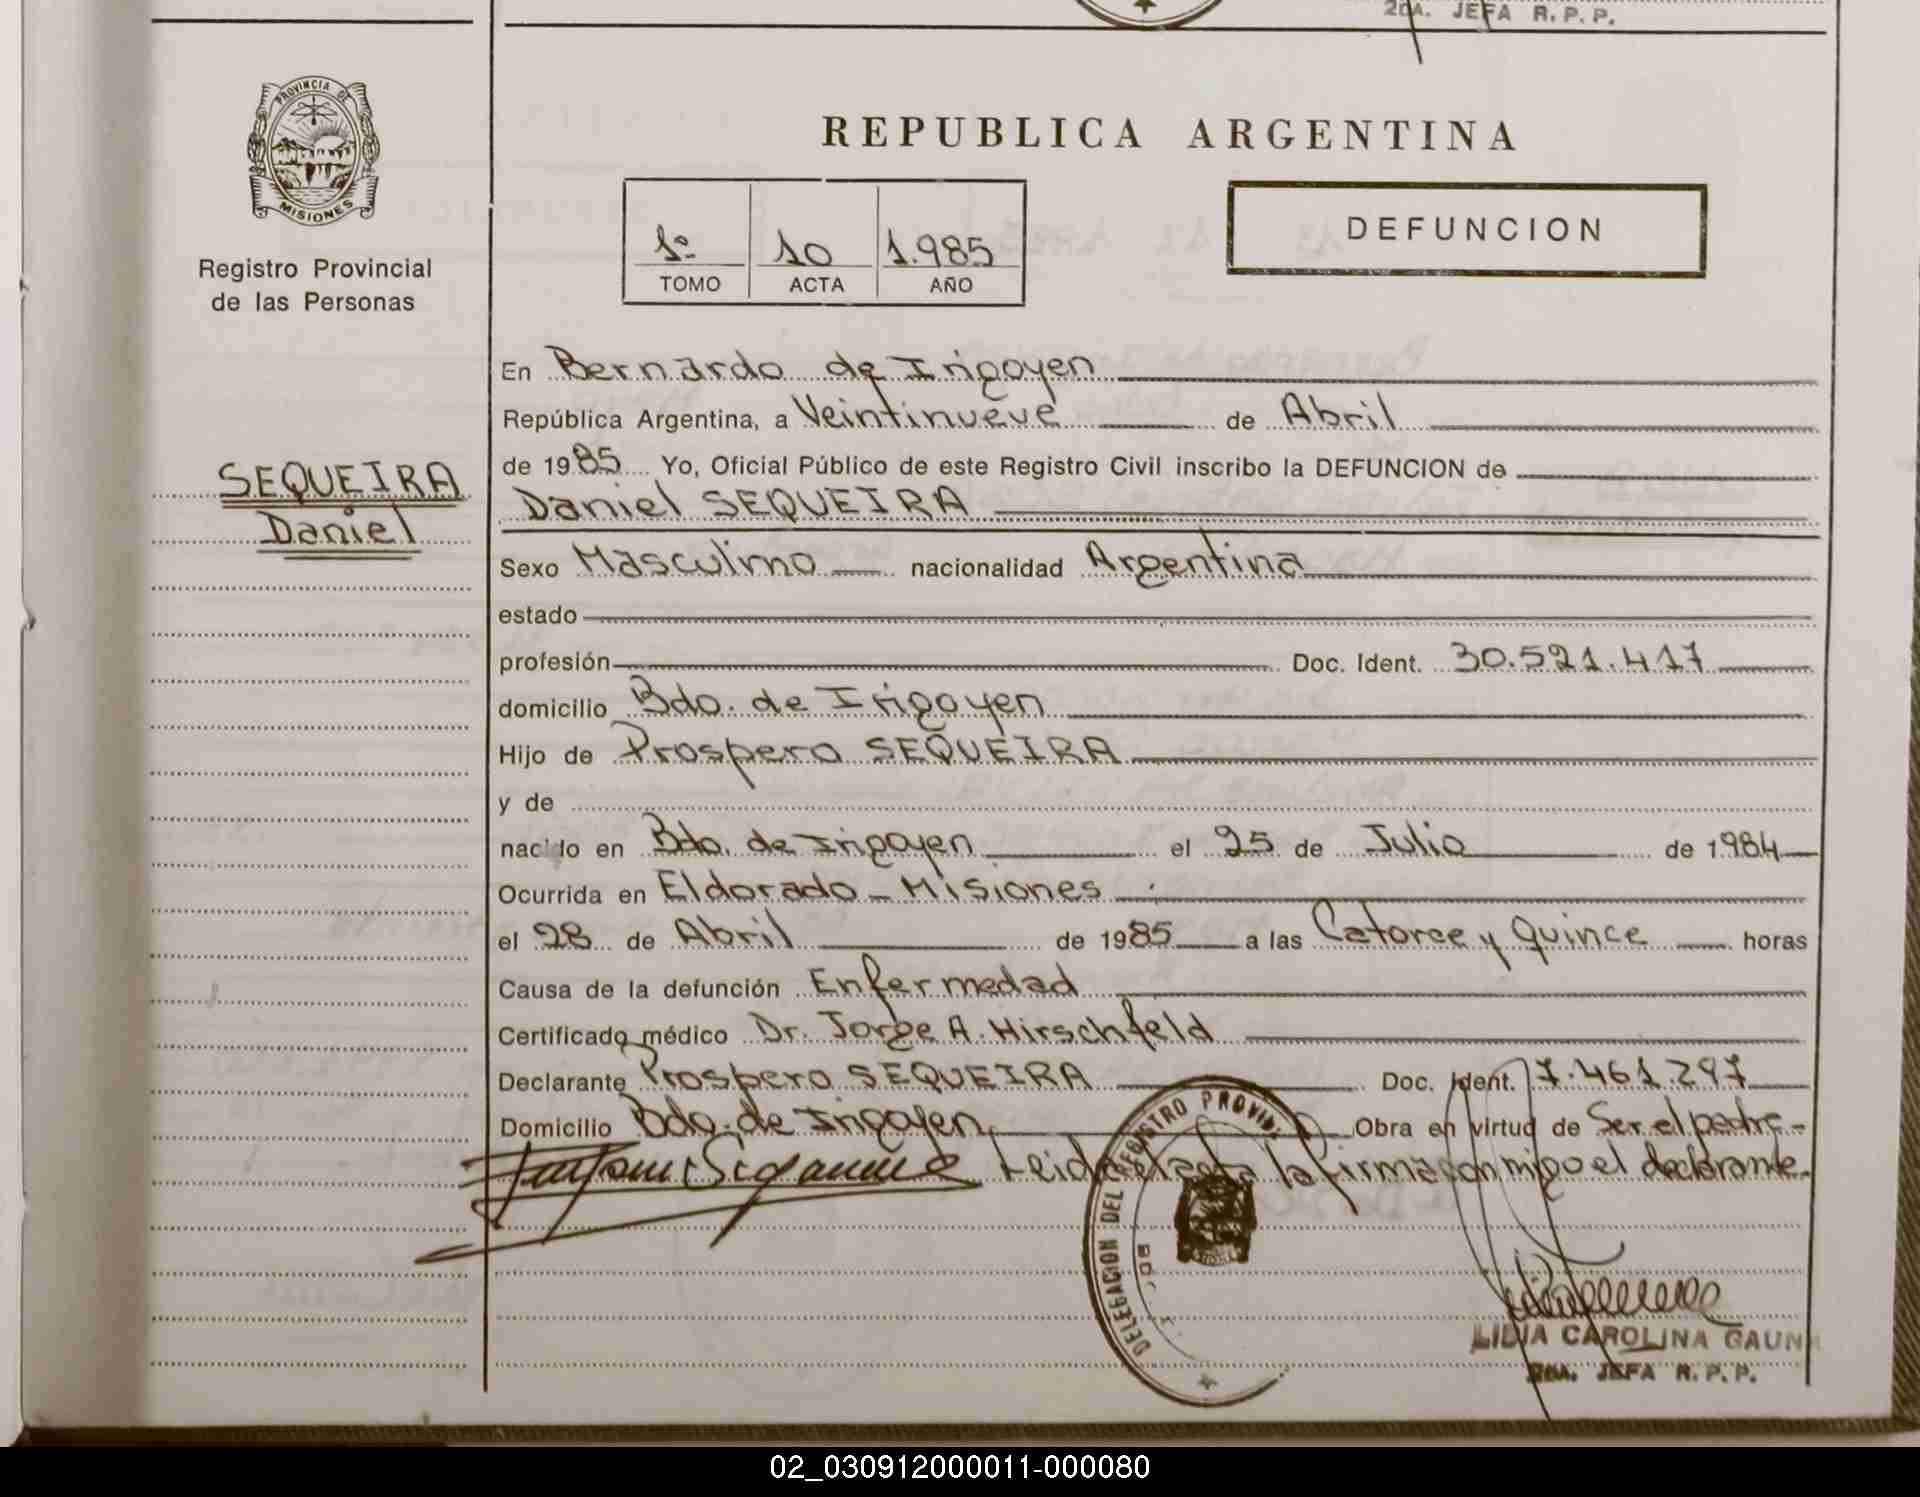 2DA. JEFA R. P. P.
PROVINCIA DE
MISIONES
Registro Provincial
de las Personas
REPUBLICA ARGENTINA
1º 10 1.985
TOMO ACTA AÑO
DEFUNCION
SEQUEIRA
Daniel
En Bernardo de Irigoyen
República Argentina, a Veintinueve de Abril
de 1985 Yo, Oficial Público de este Registro Civil inscribo la DEFUNCION de
Daniel SEQUEIRA
Sexo Masculino nacionalidad Argentina
estado
profesión Doc. Ident. 30.521.417
domicilio Bdo. de Irigoyen
Hijo de Prospero SEQUEIRA
y de
nacido en Bdo. de Irigoyen el 25 de Julio de 1984
Ocurrida en Eldorado - Misiones
el 28 de Abril de 1985 a las Catorce y Quince horas
Causa de la defunción Enfermedad
Certificado médico Dr. Jorge A. Hirschfeld
Declarante Prospero SEQUEIRA Doc. Ident. 7.461.297
Domicilio Bdo. de Irigoyen Obra en virtud de Ser el padre-
Leida el acta la firma conmigo el declarante.
DELEGACION DEL REGISTRO PROVIN
LILIA CAROLINA GAUNA
2DA. JEFA R. P. P.
02_030912000011-000080